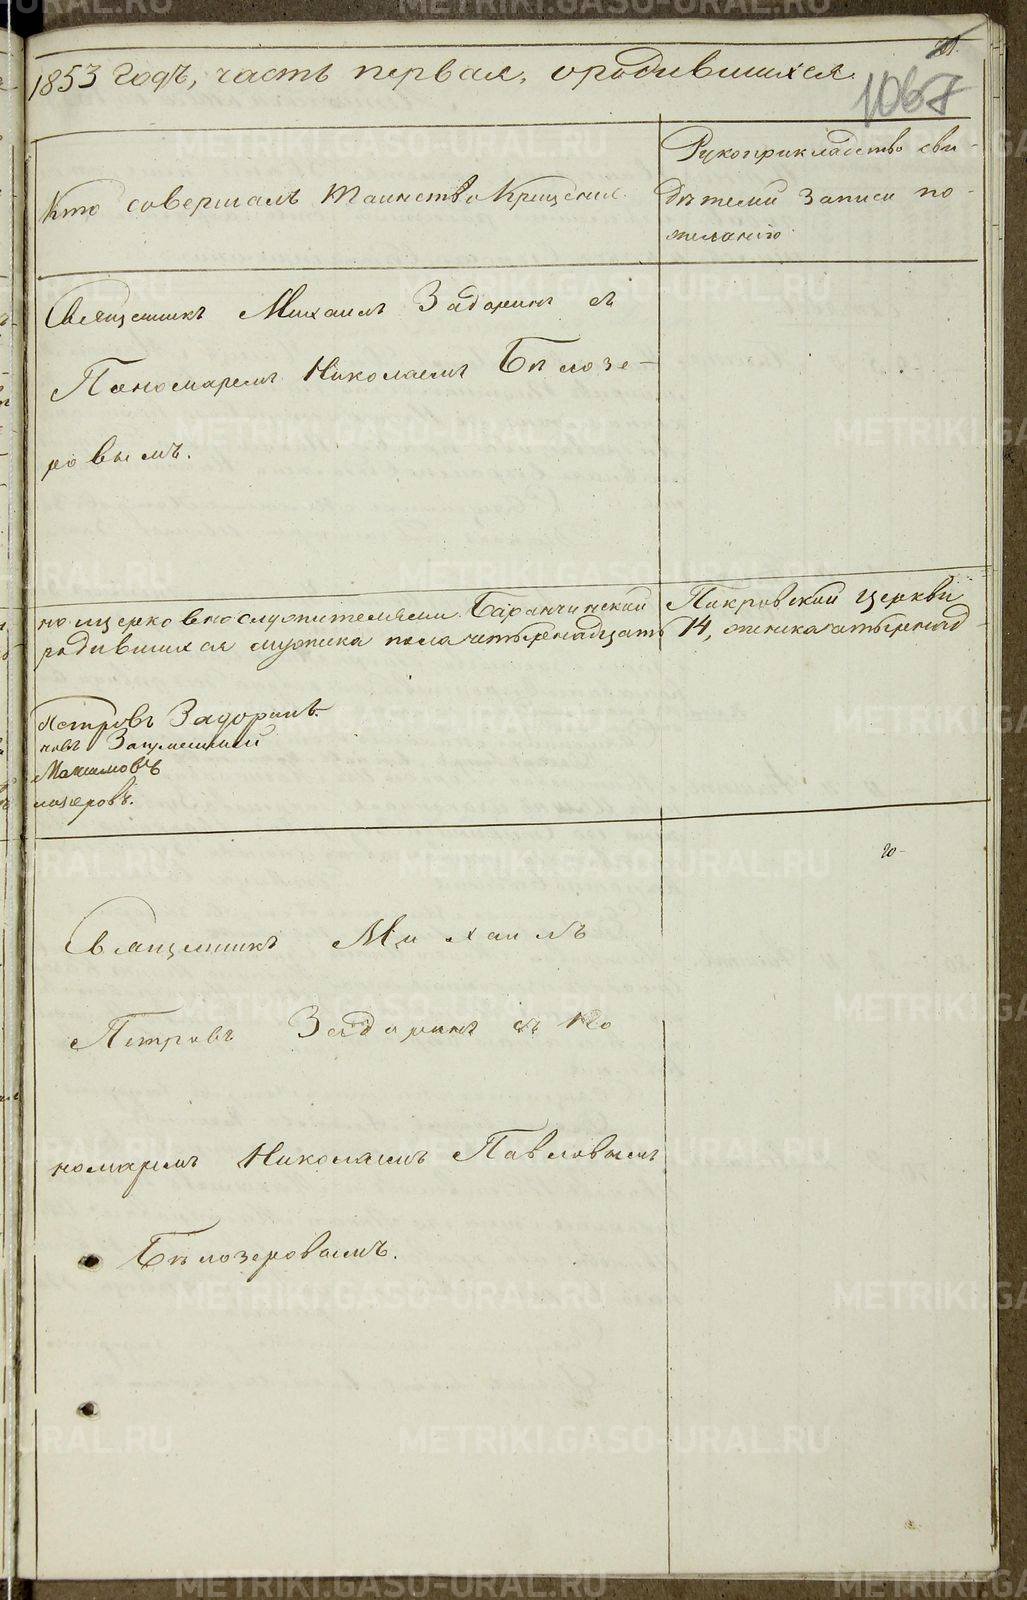 1853 годъ, часть первая, о родившихся.
1067
Кто совершалъ таинство Крещенія.
Рукоприкладство сви-
дѣтелей записи по
желанію.
Священникъ Михаилъ Задоринъ съ
Пономаремъ Николаемъ Бѣлозе-
ровымъ.
но церковнослужителями Баранчинской Покровской церкви
родившихся мужеска пола четырнадцать 14, женска четырнад-
Петровъ Задоринъ.
Максимовъ
лозеровъ.
Священникъ Михаилъ
Петровъ Задоринъ съ По
номаремъ Николаемъ Павловымъ
Бѣлозеровымъ.
METRIKI.GASO-URAL.RU